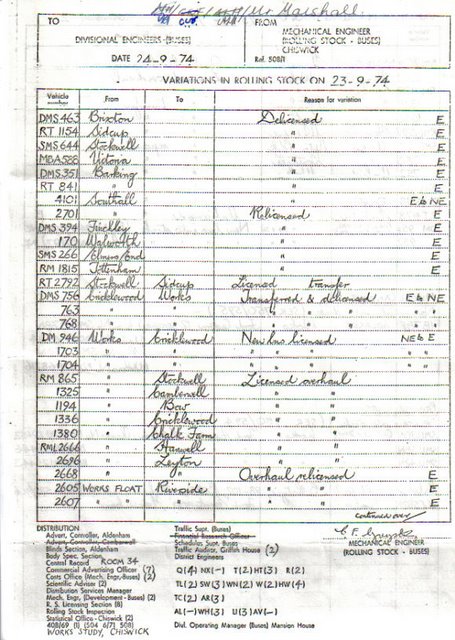 Mr Marshall.
TO
FROM
DIVISIONAL ENGINEERS (BUSES)
MECHANICAL ENGINEER
(ROLLING STOCK - BUSES)
CHISWICK
DATE 24-9-74
Ref. 508/1
VARIATIONS IN ROLLING STOCK ON 23-9-74
Vehicle From To Reason for variation
DMS 463 Brixton Delicensed E
RT 1154 Sidcup " E
SMS 644 Stockwell " E
MBA 588 Victoria " E
DMS 351 Barking " E
RT 841 " " E
4101 Southall " E to NE
2701 " Relicensed E
DMS 394 Finchley " E
170 Walworth " E
SMS 266 Elmers End " E
RM 1815 Tottenham " E
RT 2792 Stockwell Sidcup Licensed transfer
DMS 756 Cricklewood Works Transferred & delicensed E to NE
763 " " " " " "
768 " " " " " "
DM 946 Works Cricklewood New bus licensed NE to E
1703 " " " " "
1704 " " " " "
RM 865 Stockwell Licensed overhaul
1325 Camberwell " "
1194 Bow " "
1336 Cricklewood " "
1380 Chalk Farm " "
RML 2666 Hanwell " "
2696 Leyton " "
2668 " Overhaul relicensed E
2605 WORKS FLOAT Riverside " " E
2607 " " " " " E
continued over
DISTRIBUTION
Advert. Controller, Aldenham
Blinds Section, Aldenham
Body Spec. Section
Central Record ROOM 34
Commercial Advertising Officer (7)
Costs Office (Mech. Engr-Buses) (2)
Scientific Adviser (2)
Distribution Services Manager
Mech. Engr. (Development - Buses) (2)
R. S. Licensing Section (8)
Rolling Stock Inspection
Statistical Office - Chiswick (2)
WORKS STUDY, CHISWICK
Traffic Supt. (Buses)
Financial Research Officer
Schedules Supt. Buses
Traffic Auditor, Griffith House (2)
District Engineers
Q(4) NX(-) T(2) HT(3) R(2)
TL(2) SW(3) WN(2) W(2) HW(4)
TC(2) AR(3)
AL(-) WH(3) U(3) AV(-)
Divl. Operating Manager (Buses) Mansion House
MECHANICAL ENGINEER
(ROLLING STOCK - BUSES)